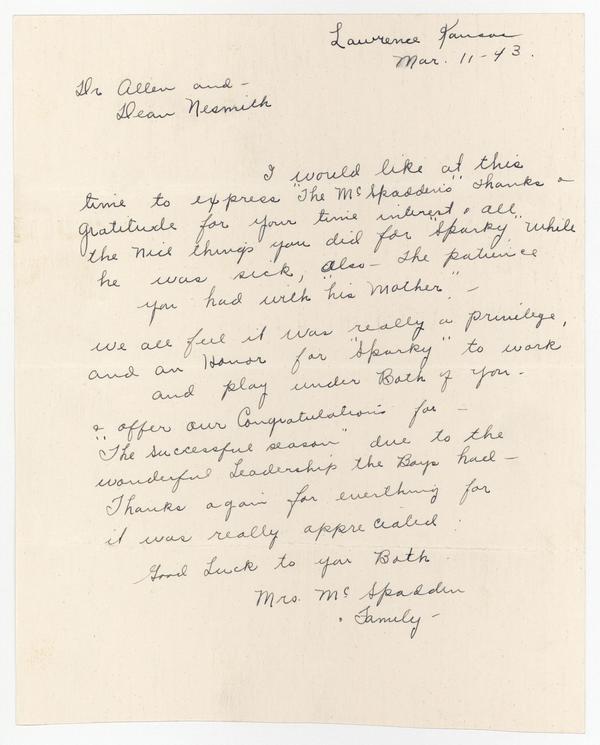 Lawrence Kansas
Mar. 11-43.
Dr Allen and -
Dean Nesmith
I would like at this
time to express "The McSpadden's" Thanks &
gratitude for your time interest & all
the nice things you did for "Sparky" while
he was sick, also - the patience
you had with "his Mother" -
we all feel it was really a privilege,
and an Honor for "Sparky" to work
and play under Both of you -
& offer our Congratulations for -
"The Successful season" due to the
wonderful Leadership the Boys had -
Thanks again for everthing for
it was really appreciated.
Good Luck to you Both.
Mrs. McSpadden
& Family -